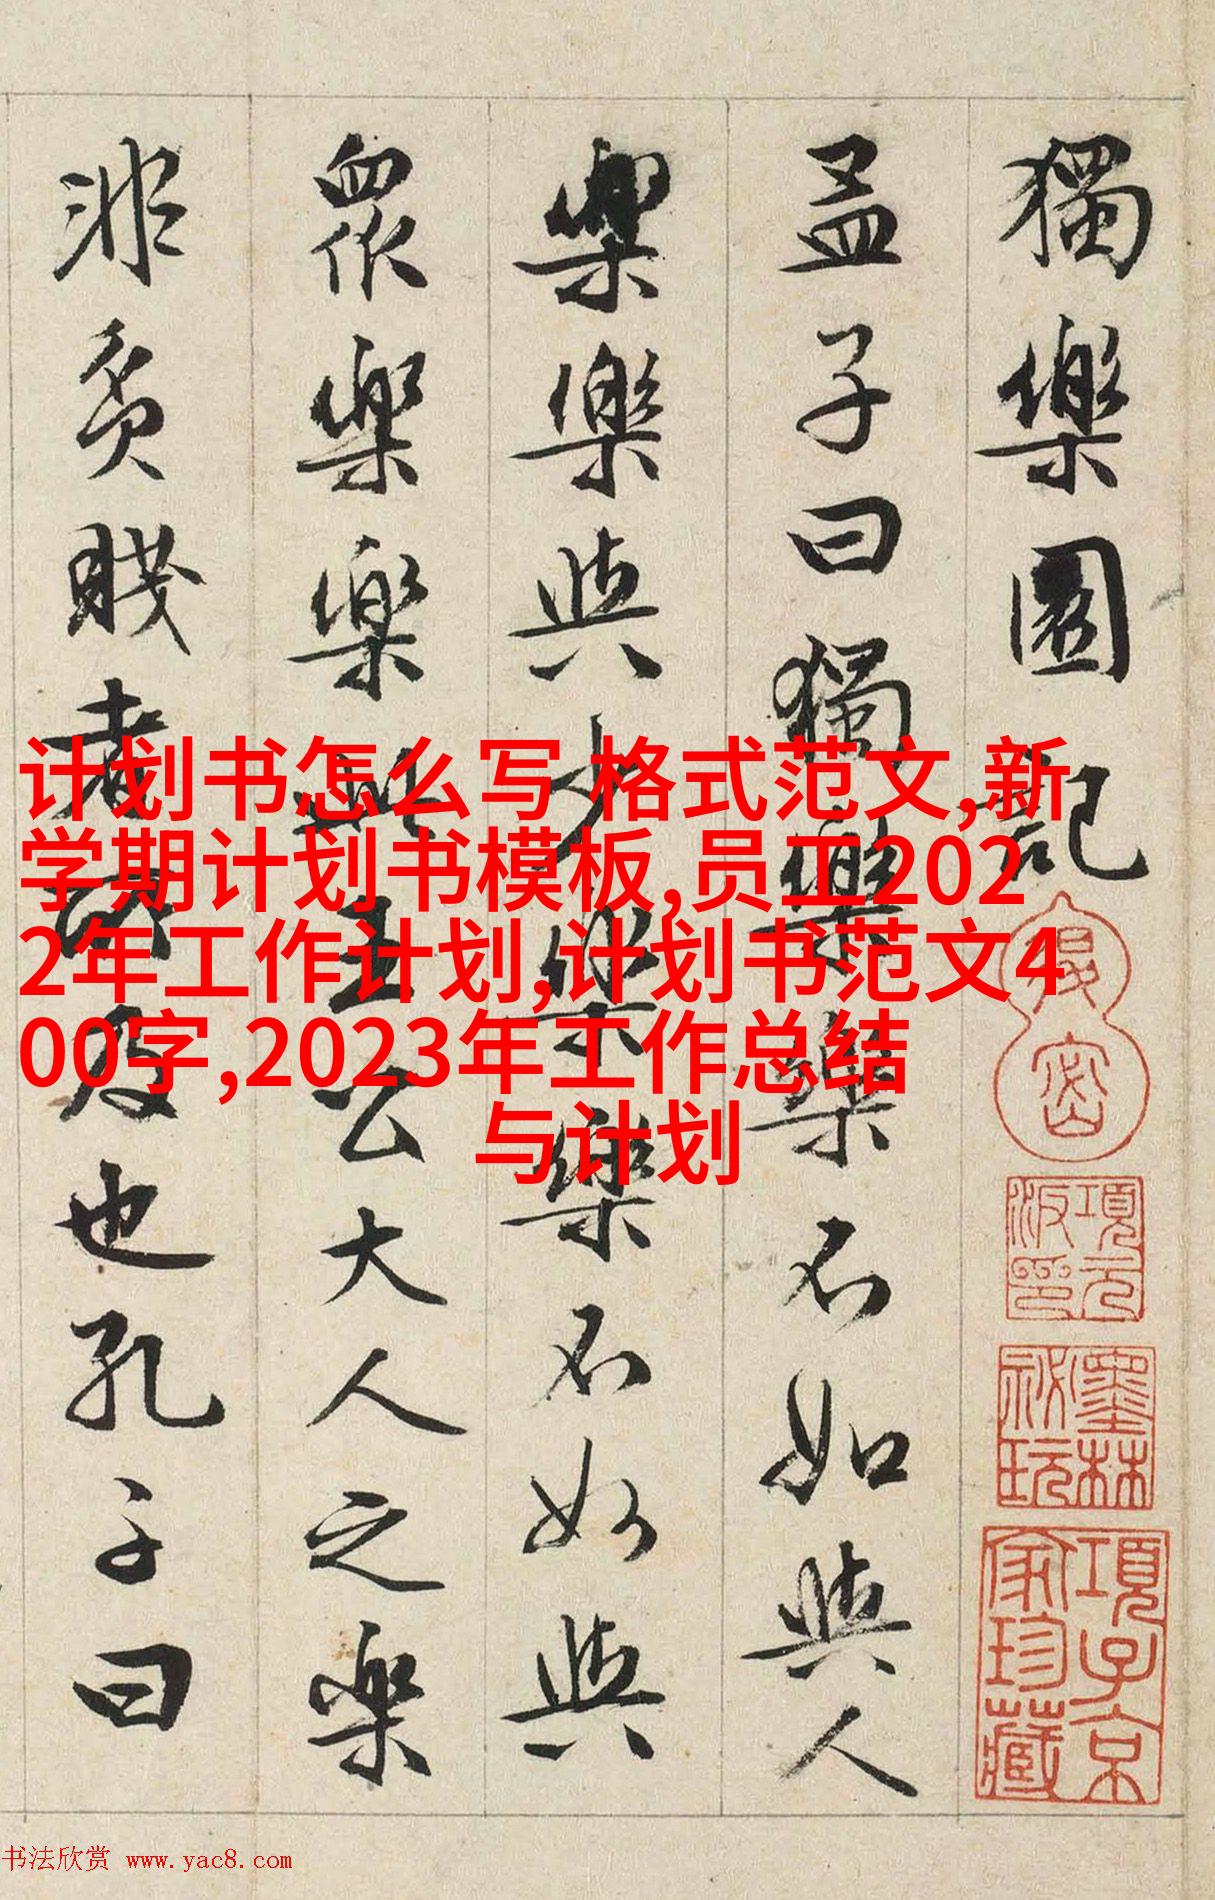 獨樂園記
孟子曰獨樂樂不如與人
樂樂與少樂樂不如與
眾樂樂此王公大人之樂
非貧賤者所及也孔子曰
计划书怎么写 格式范文,新
学期计划书模板,员工202
2年工作计划,计划书范文4
00字,2023年工作总结
与计划
項元
汴印
墨林
祕玩
項子京
家珍藏
书法欣赏 www.yac8.com